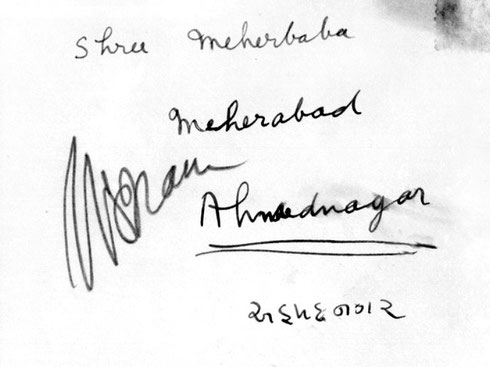 Shree Meherbaba
Meherabad
Ahmednagar
અહમદનગર